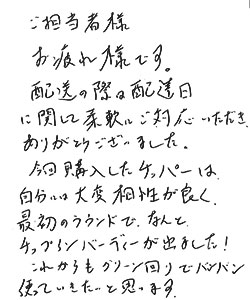 ご担当者様
お疲れ様です。
配送の際は配達日
に関して柔軟にご対応いただき
ありがとうございました。
今回購入したチッパーは、
自分には大変相性が良く、
最初のラウンドで、なんと
チップインバーディーが出ました！
これからもグリーン回りでバンバン
使っていきたいと思います。